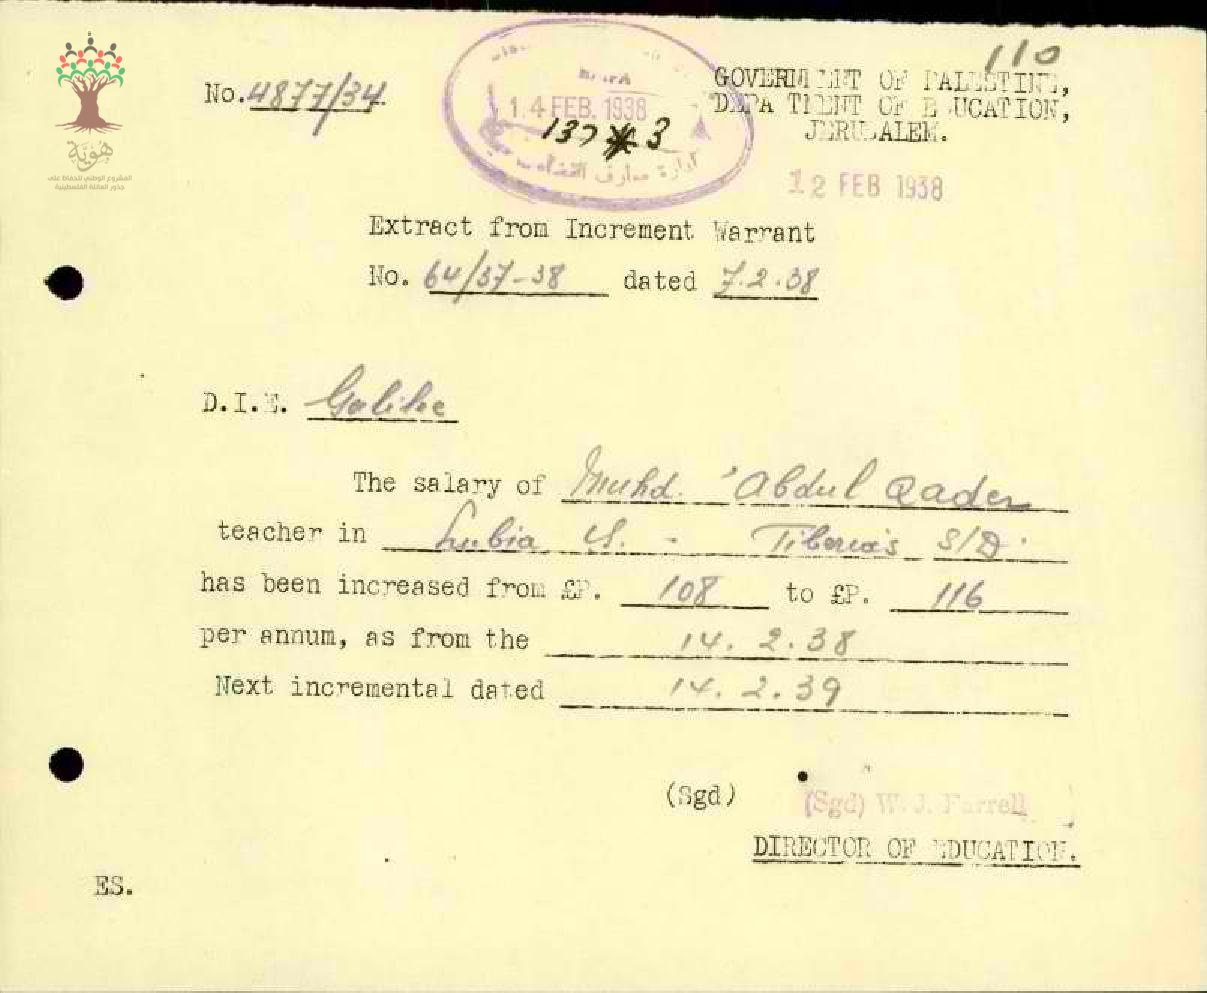 110
No. 4877/34
GOVERNMENT OF PALESTINE,
DEPARTMENT OF EDUCATION,
JERUSALEM.
14 FEB. 1938
137 3
إدارة معارف
12 FEB 1938
هوية
المشروع الوطني للحفاظ على
جذور العائلة الفلسطينية
Extract from Increment Warrant
No. 64/37-38 dated 7.2.38
D.I.E. Galilee
The salary of Muhd. 'Abdul Qader
teacher in Lubia S. - Tiberias S/D.
has been increased from £P. 108 to £P. 116
per annum, as from the 14.2.38
Next incremental dated 14.2.39
(Sgd) (Sgd) W. J. Farrell
DIRECTOR OF EDUCATION.
ES.